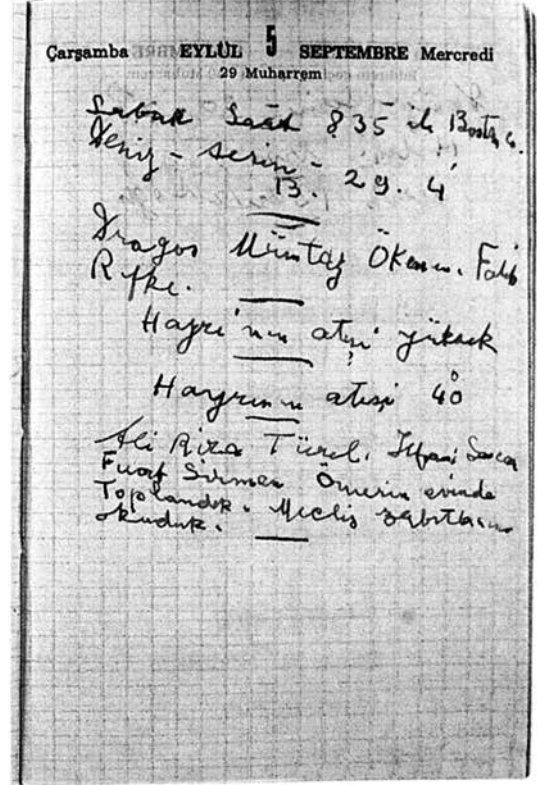 Çarşamba EYLÜL 5 SEPTEMBRE Mercredi
29 Muharrem
Sabah Saat 8 35 ile
Deniz - serin -
13. 29. 4
Dragos Mümtaz Ökmen. Falih
Rıfkı.
Hayri'nin ateşi yüksek
Hayrinin ateşi 40
Ali Rıza Türel.
Fuat Sirmen Ömerin evinde
Toplandık. Meclis zabıtlarını
okuduk.